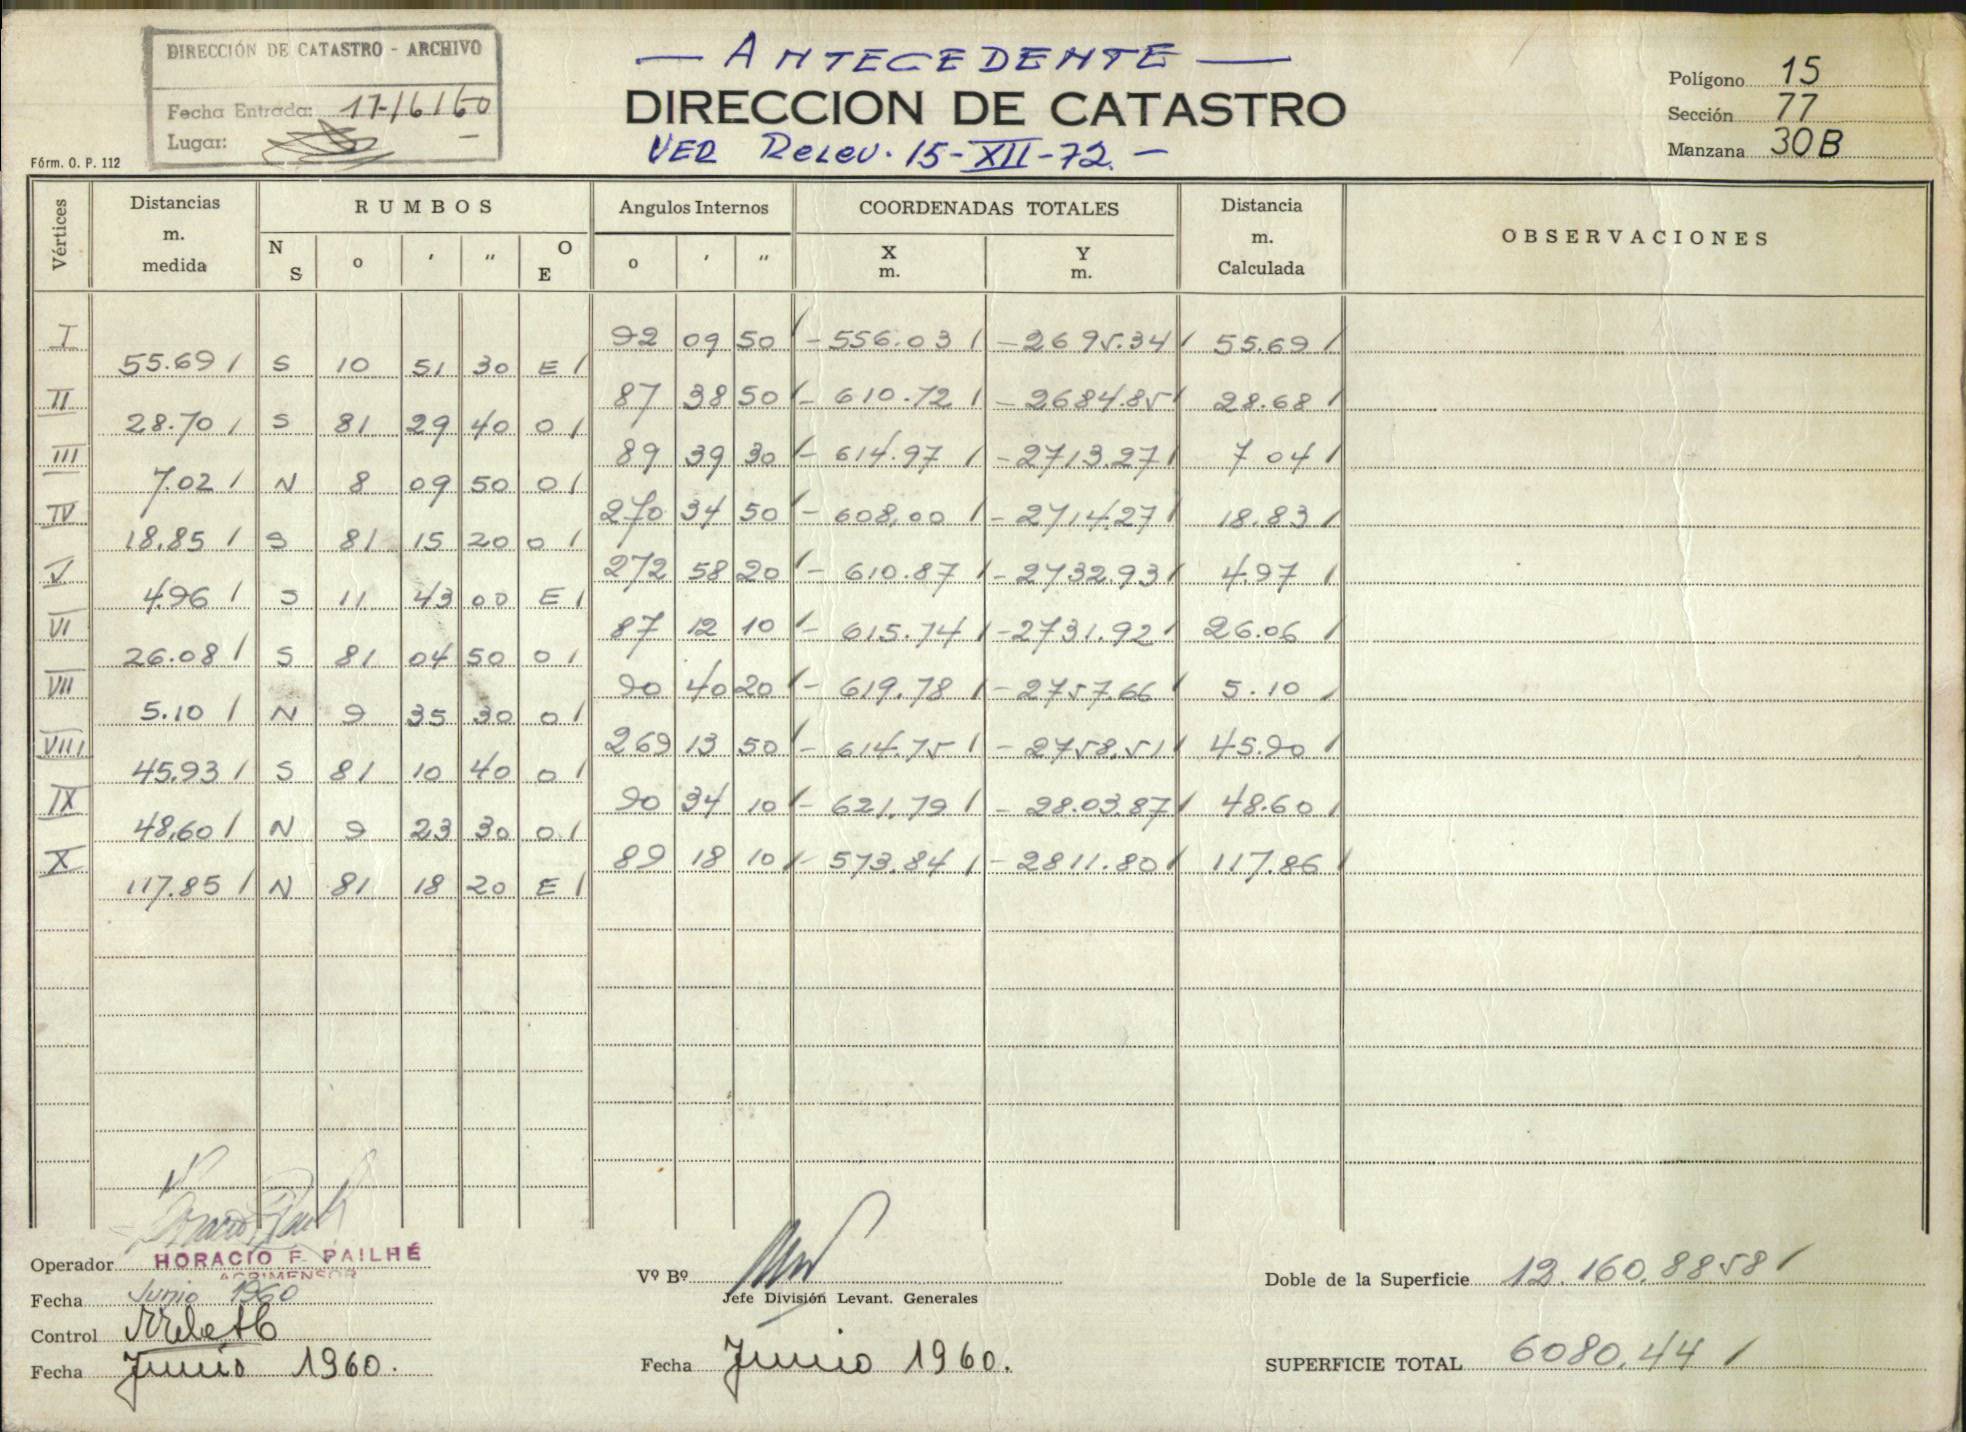 DIRECCIÓN DE CATASTRO - ARCHIVO
Fecha Entrada: 17-/6/60
Lugar:
— ANTECEDENTE —
DIRECCION DE CATASTRO
VER Relev. 15-XII-72.-
Polígono 15
Sección 77
Manzana 30B
Fórm. O. P. 112
Vértices Distancias m. medida RUMBOS Angulos Internos COORDENADAS TOTALES Distancia m. Calculada OBSERVACIONES
N S o ' " O E o ' " X m. Y m.
I 92 09 50 / -556.03 / -2695.34 / 55.69 /
55.69 / S 10 51 30 E /
II 87 38 50 / - 610.72 / - 2684.85 / 28.68 /
28.70 / S 81 29 40 O /
III 89 39 30 / - 614.97 / -2713.27 / 7 04 /
7.02 / N 8 09 50 O /
IV 270 34 50 / - 608.00 / - 2714.27 / 18.83 /
18.85 / S 81 15 20 O /
V 272 58 20 / - 610.87 / - 2732.93 / 4.97 /
4.96 / S 11 43 00 E /
VI 87 12 10 / - 615.74 / -2731.92 / 26.06 /
26.08 / S 81 04 50 O /
VII 90 40 20 / - 619.78 / - 2757.66 / 5.10 /
5.10 / N 9 35 30 O /
VIII 269 13 50 / - 614.75 / - 2758.51 / 45.90 /
45.93 / S 81 10 40 O /
IX 90 34 10 / - 621.79 / - 28.03.87 / 48.60 /
48.60 / N 9 23 30 O /
X 89 18 10 / - 573.84 / - 2811.80 / 117.86 /
117.85 / N 81 18 20 E /
Operador HORACIO F. PAILHÉ
AGRIMENSOR
Fecha Junio 1960
Control
Fecha Junio 1960.
Vº Bº
Jefe División Levant. Generales
Fecha Junio 1960.
Doble de la Superficie 12.160.8858 /
SUPERFICIE TOTAL 6080.44 /